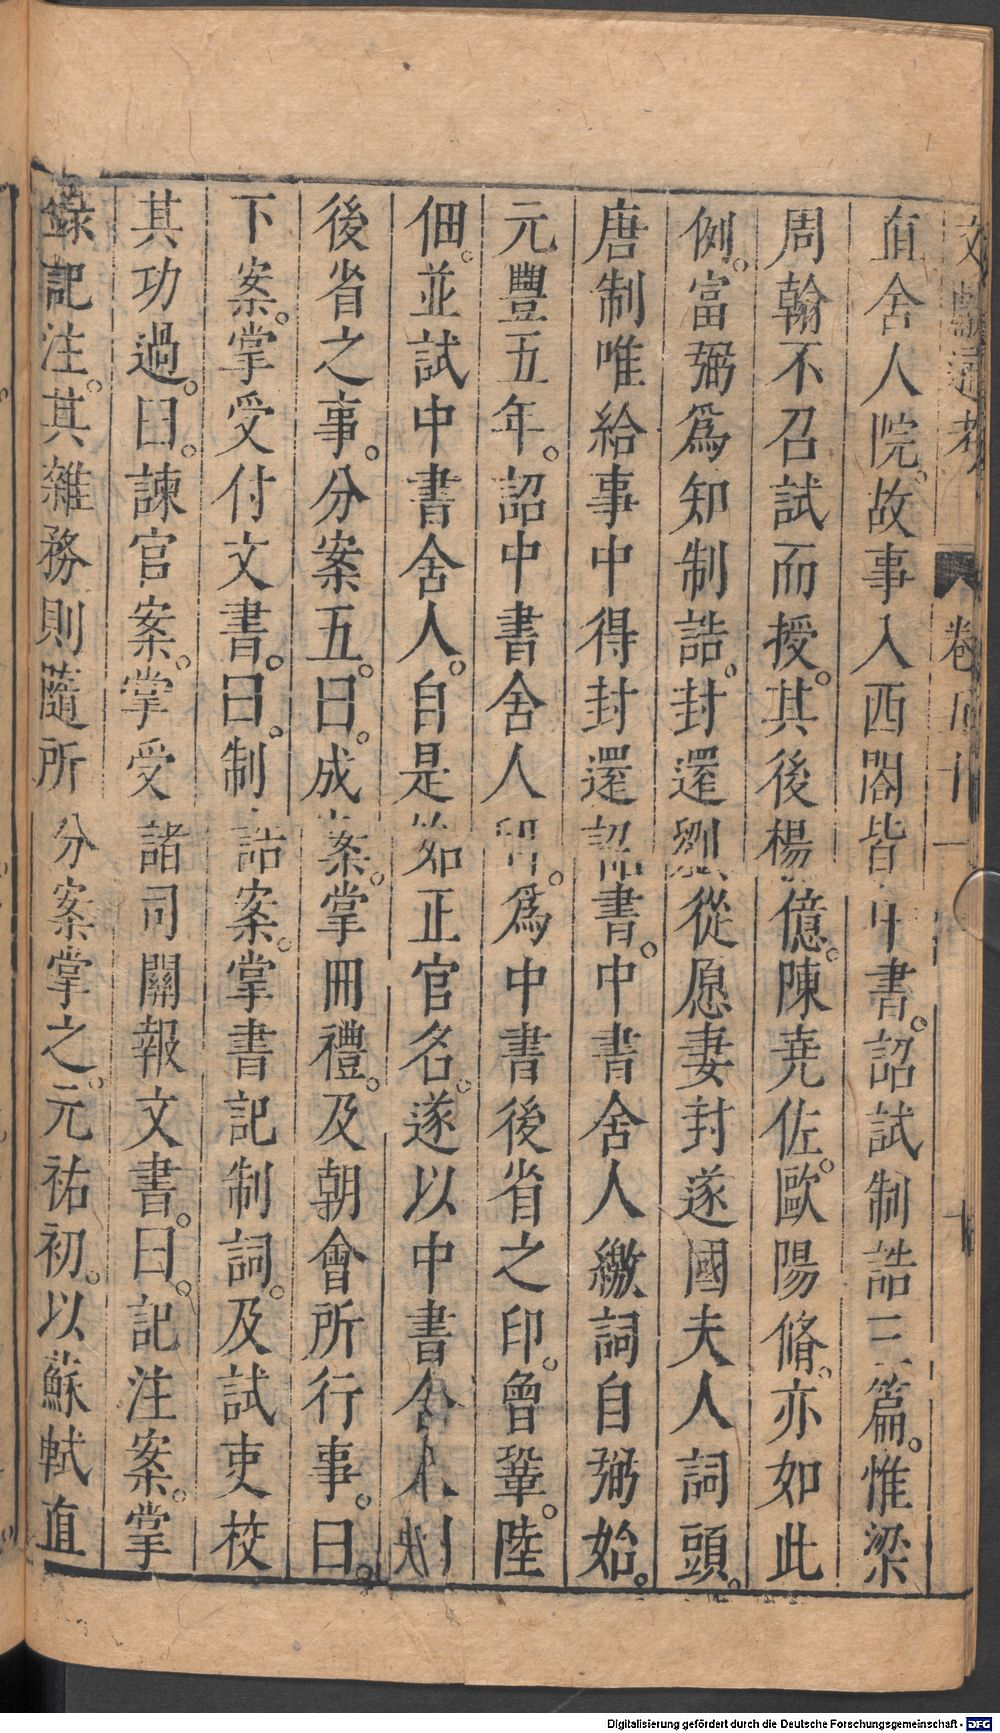 文獻通考 卷五十一 十
直舍人院。故事入西閣皆中書。詔試制誥三篇。惟梁
周翰不召試而授。其後楊億。陳堯佐。歐陽脩。亦如此
例。富弼爲知制誥。封還劉從愿妻封遂國夫人詞頭。
唐制唯給事中得封還詔書。中書舍人繳詞自弼始。
元豐五年。詔中書舍人印。爲中書後省之印。曾鞏。陸
佃。並試中書舍人。自是始正官名。遂以中書舍人判
後省之事。分案五。曰。成案。掌冊禮。及朝會所行事。曰。
下案。掌受付文書。曰。制誥案。掌書記制詞。及試吏校
其功過。曰。諫官案。掌受諸司關報文書。曰。記注案。掌
錄記注。其雜務則隨所分案掌之。元祐初。以蘇軾直
Digitalisierung gefördert durch die Deutsche Forschungsgemeinschaft - DFG